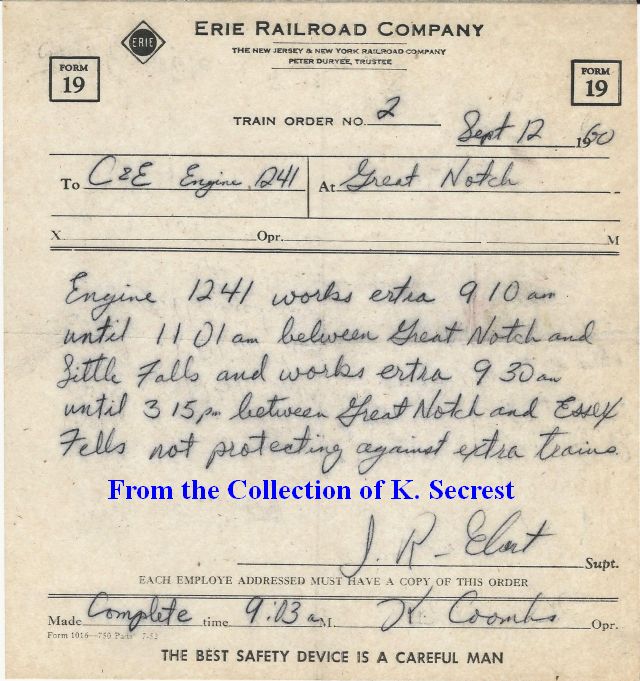 ERIE
ERIE RAILROAD COMPANY
THE NEW JERSEY & NEW YORK RAILROAD COMPANY
PETER DURYEE, TRUSTEE
FORM 19
FORM 19
TRAIN ORDER NO. 2
Sept 12 1960
To C&E Engine 1241 At Great Notch
X. Opr. M
Engine 1241 works extra 9 10 am
until 11 01 am between Great Notch and
Little Falls and works extra 9 30 am
until 3 15 pm between Great Notch and Essex
Fells not protecting against extra trains.
From the Collection of K. Secrest
J. R - Supt.
EACH EMPLOYE ADDRESSED MUST HAVE A COPY OF THIS ORDER
Made Complete time 9:03 a M. K Coombs Opr.
Form 1016—750 Pads 7-52
THE BEST SAFETY DEVICE IS A CAREFUL MAN